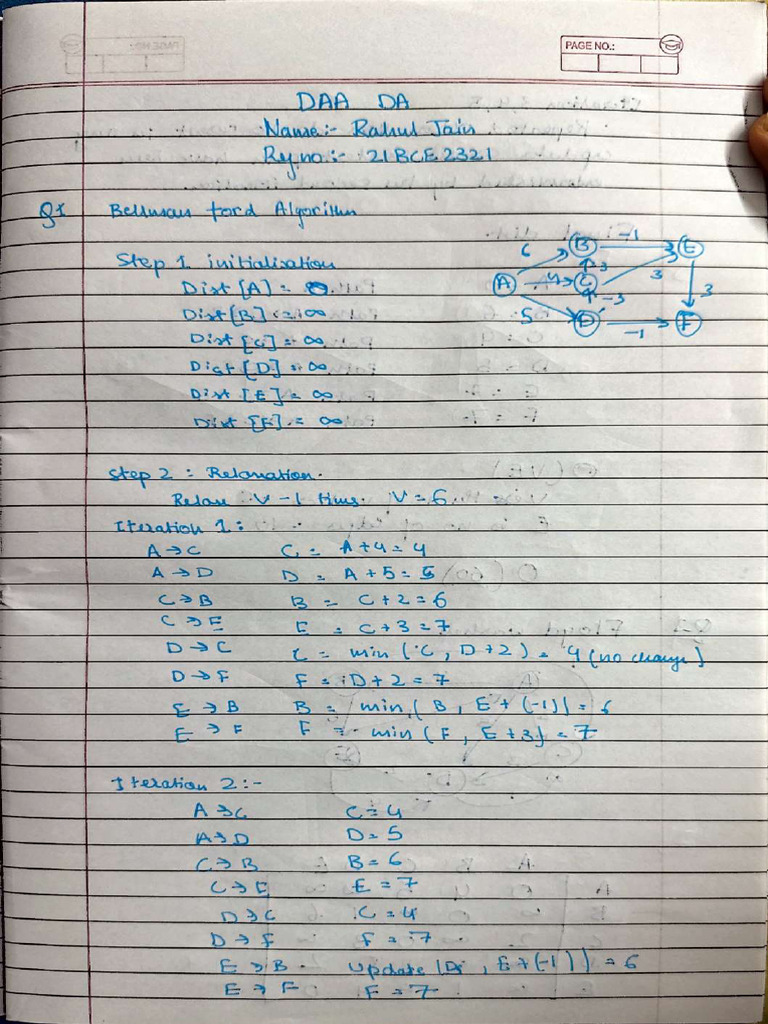 PAGE NO.:
DAA DA
Name:- Rahul Jain
Reg.no.:- 21BCE2321
Q1 Bellman ford Algorithm
Step 1 initialisation
Dist [A] = 0
Dist [B] = ∞
Dist [C] = ∞
Dist [D] = ∞
Dist [E] = ∞
Dist [F] = ∞
6 B -1 E
A 4 C 3 3 3
5 D -3 -1 F
Step 2 : Relaxation.
Relax V-1 times. V = 6
Iteration 1:
A → C C = A+4 = 4
A → D D = A+5 = 5
C → B B = C+2 = 6
C → E E = C+3 = 7
D → C C = min (C, D+2) = 4 (no change)
D → F F = D+2 = 7
E → B B = min (B, E+(-1)) = 6
E → F F = min (F, E+3) = 7
Iteration 2:-
A → C C = 4
A → D D = 5
C → B B = 6
C → E E = 7
D → C C = 4
D → F F = 7
E → B update (, E+(-1)) = 6
E → F F = 7